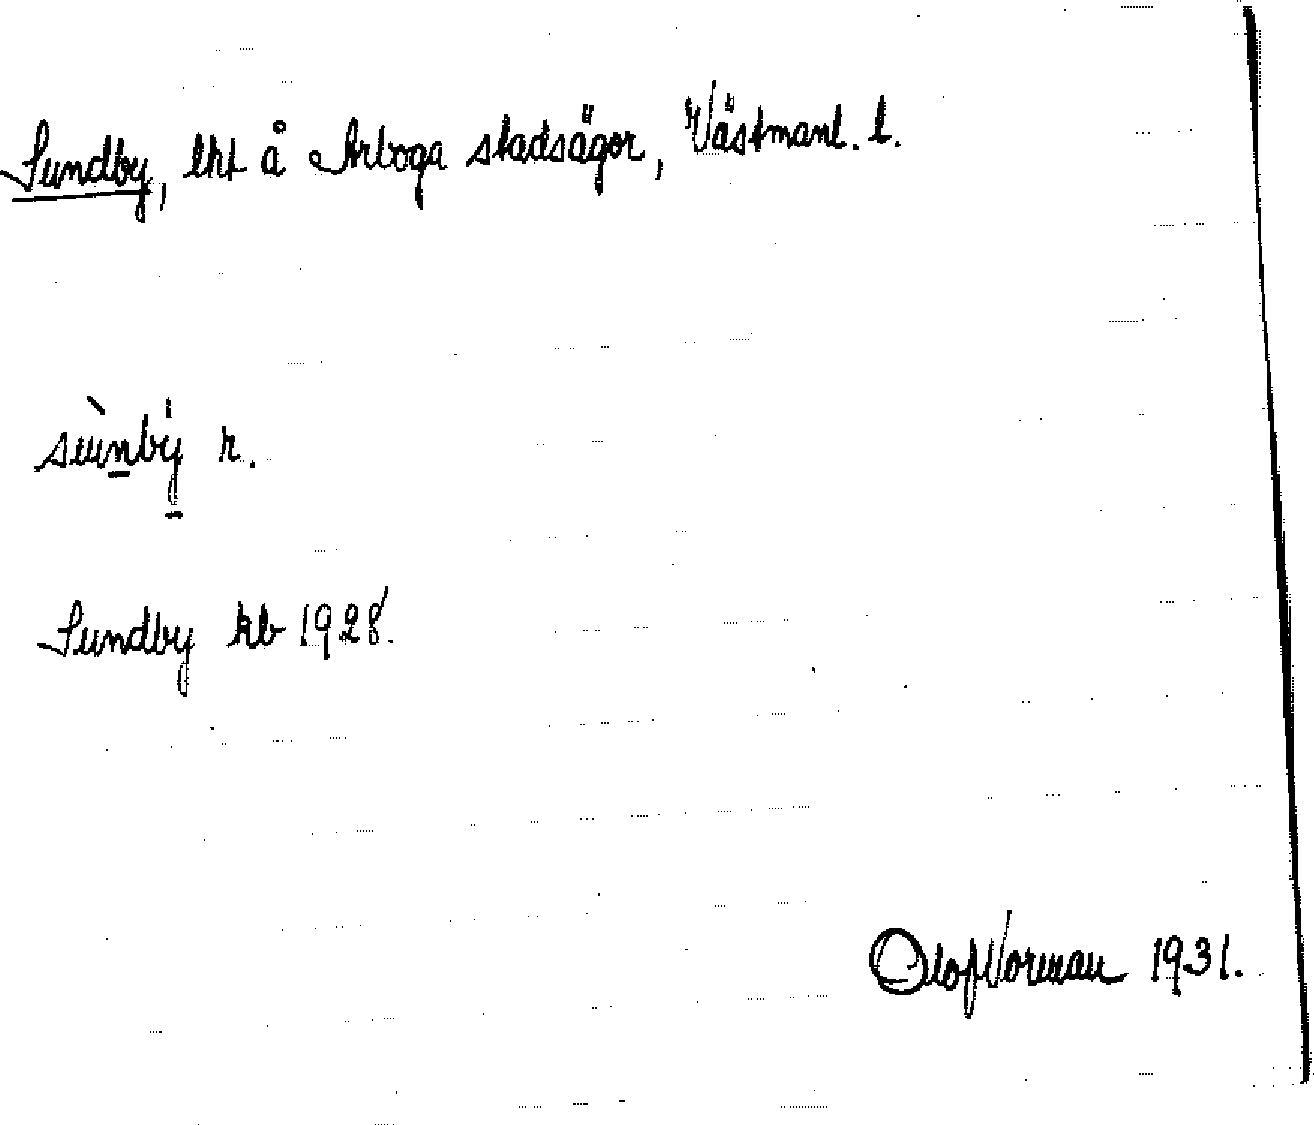 Sundby, lht å Arboga stadsägor, Västmanl. l.
sùnbý r.
Sundby kb 1928.
Olof Norman 1931.